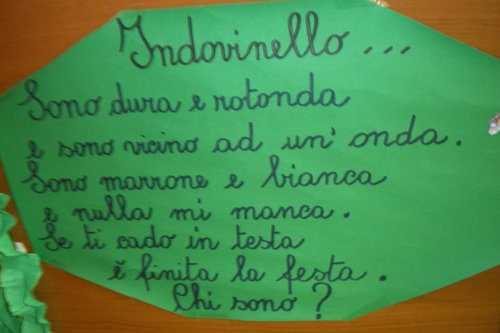 Indovinello...
Sono dura e rotonda
e sono vicino ad un' onda.
Sono marrone e bianca
e nulla mi manca.
Se ti cado in testa
è finita la festa.
Chi sono?